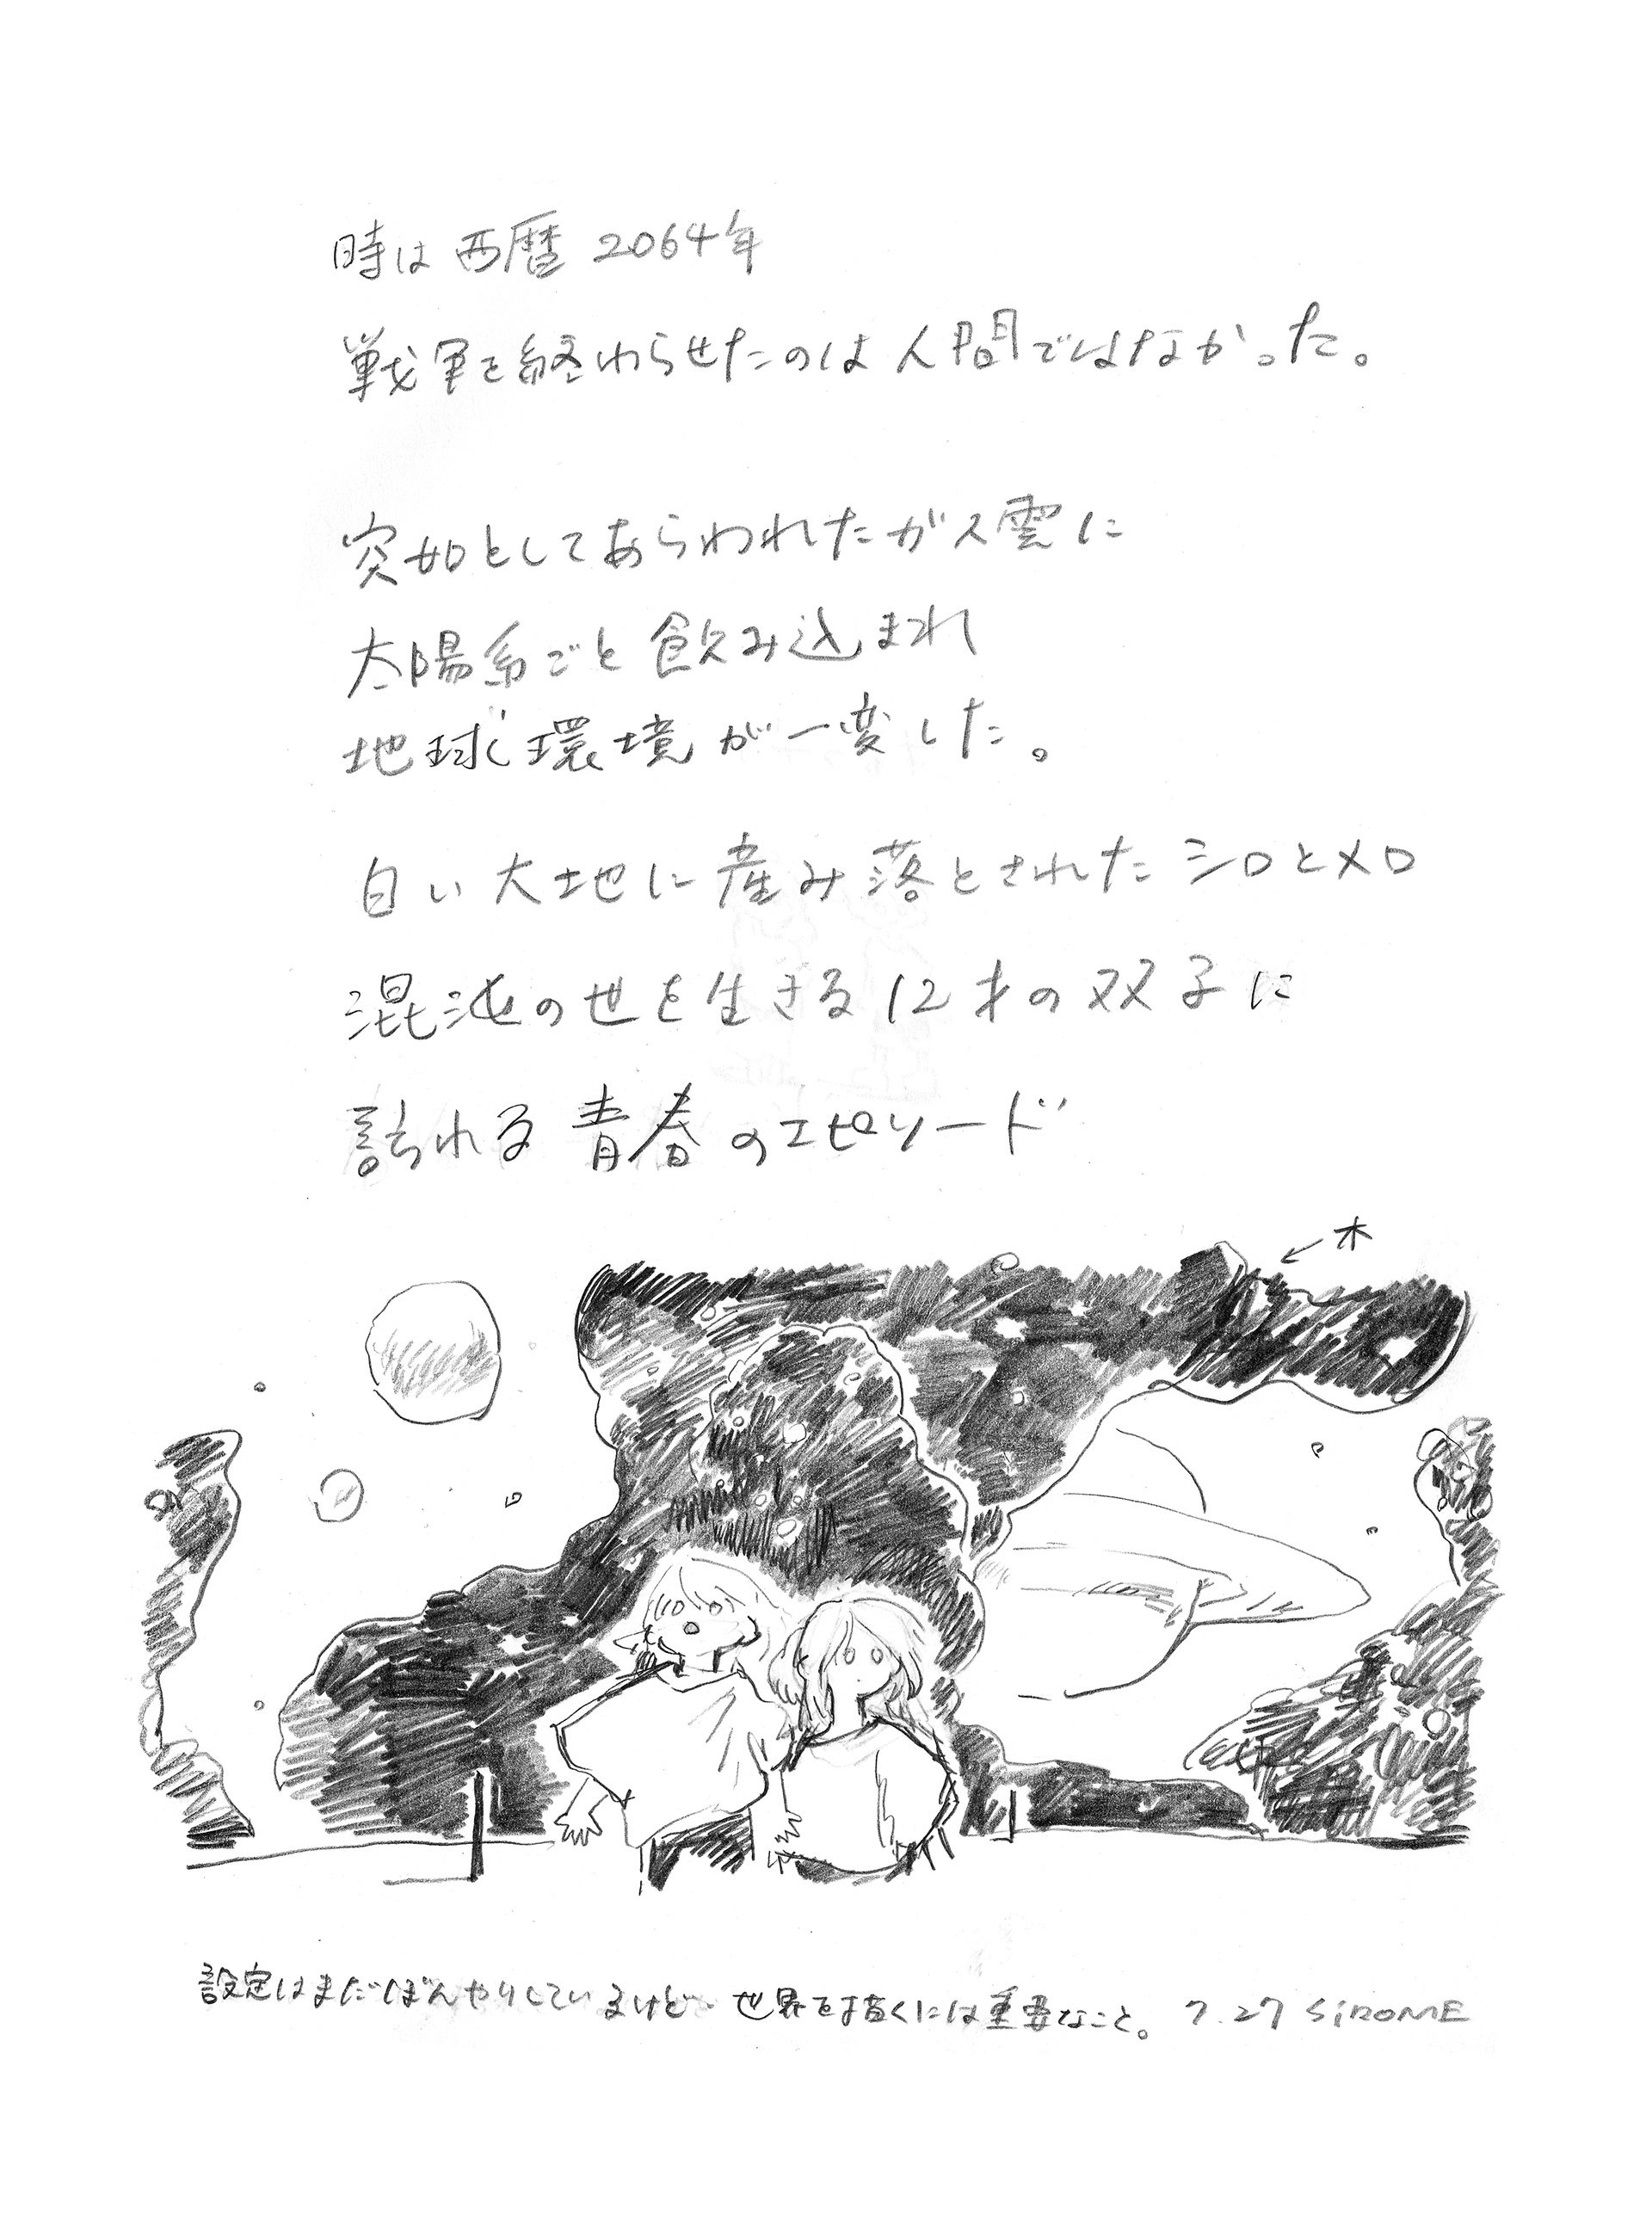 時は西暦 2064年
戦軍を終わらせたのは人間ではなかった。
突如としてあらわれたガス雲に
太陽系ごと飲み込まれ
地球環境が一変した。
白い大地に産み落とされたシロとメロ
混沌の世を生きる12才の双子に
誇れる青春のエピソード
←木
設定はまだぼんやりしているけど 世界を描くには重要なこと。 7.27 SiROME